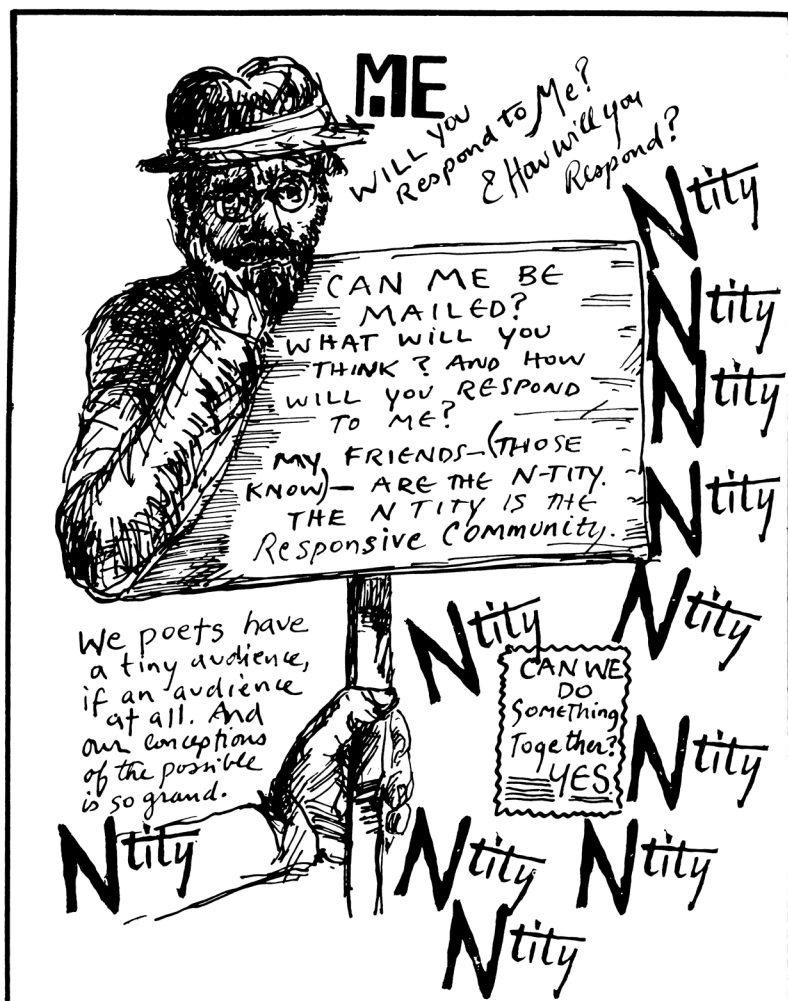 ME
WILL YOU
Respond to Me?
& How will you
Respond?
Ntity
Ntity
Ntity
Ntity
Ntity
CAN ME BE
MAILED?
WHAT WILL YOU
THINK? AND HOW
WILL YOU RESPOND
TO ME?
MY FRIENDS—(THOSE
KNOW)— ARE THE N-TITY.
THE N TITY IS THE
Responsive Community.
We poets have
a tiny audience,
if an audience
at all. And
our conceptions
of the possible
is so grand.
Ntity
Ntity
CAN WE
DO
Something
Together?
YES
Ntity
Ntity
Ntity
Ntity